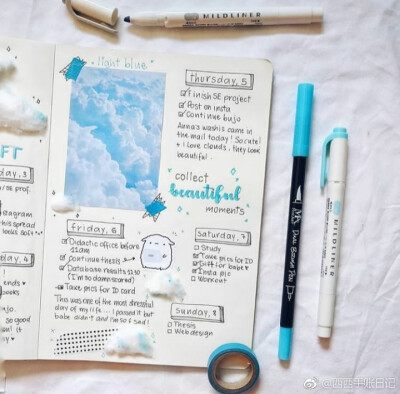 MILDLINER
light blue
thursday, 5
Finish SE project
Post on insta
Continue bujo
Anna's washis came in
the mail today! So cute!
+ I love clouds, they look
beautiful.
collect
beautiful
moments
friday, 6
Didactic office before
11am
Continue thesis
Database results 13:30
(I'm so damn scared)
Take pics for ID card
This was one of the most stressful
day of my life... I passed it but
babe didn't and I'm so sad!
saturday, 7
Study
Take pics for ID
Gift for babe ♥
Insta pic
Workout
sunday, 8
Thesis
Webdesign
FT
SE prof.
this spread
looks soft
books
so good
Dual Brush Pen
MILDLINER
@西西半账日记